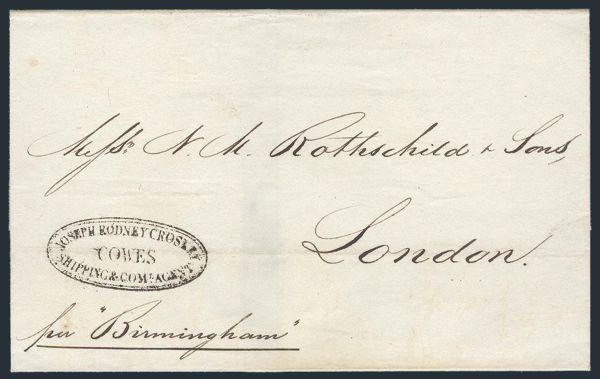 Messrs. N. M. Rothschild & Sons,
London.
JOSEPH RODNEY CROSKEY
COWES
SHIPPING & COM. AGENT
per "Birmingham"